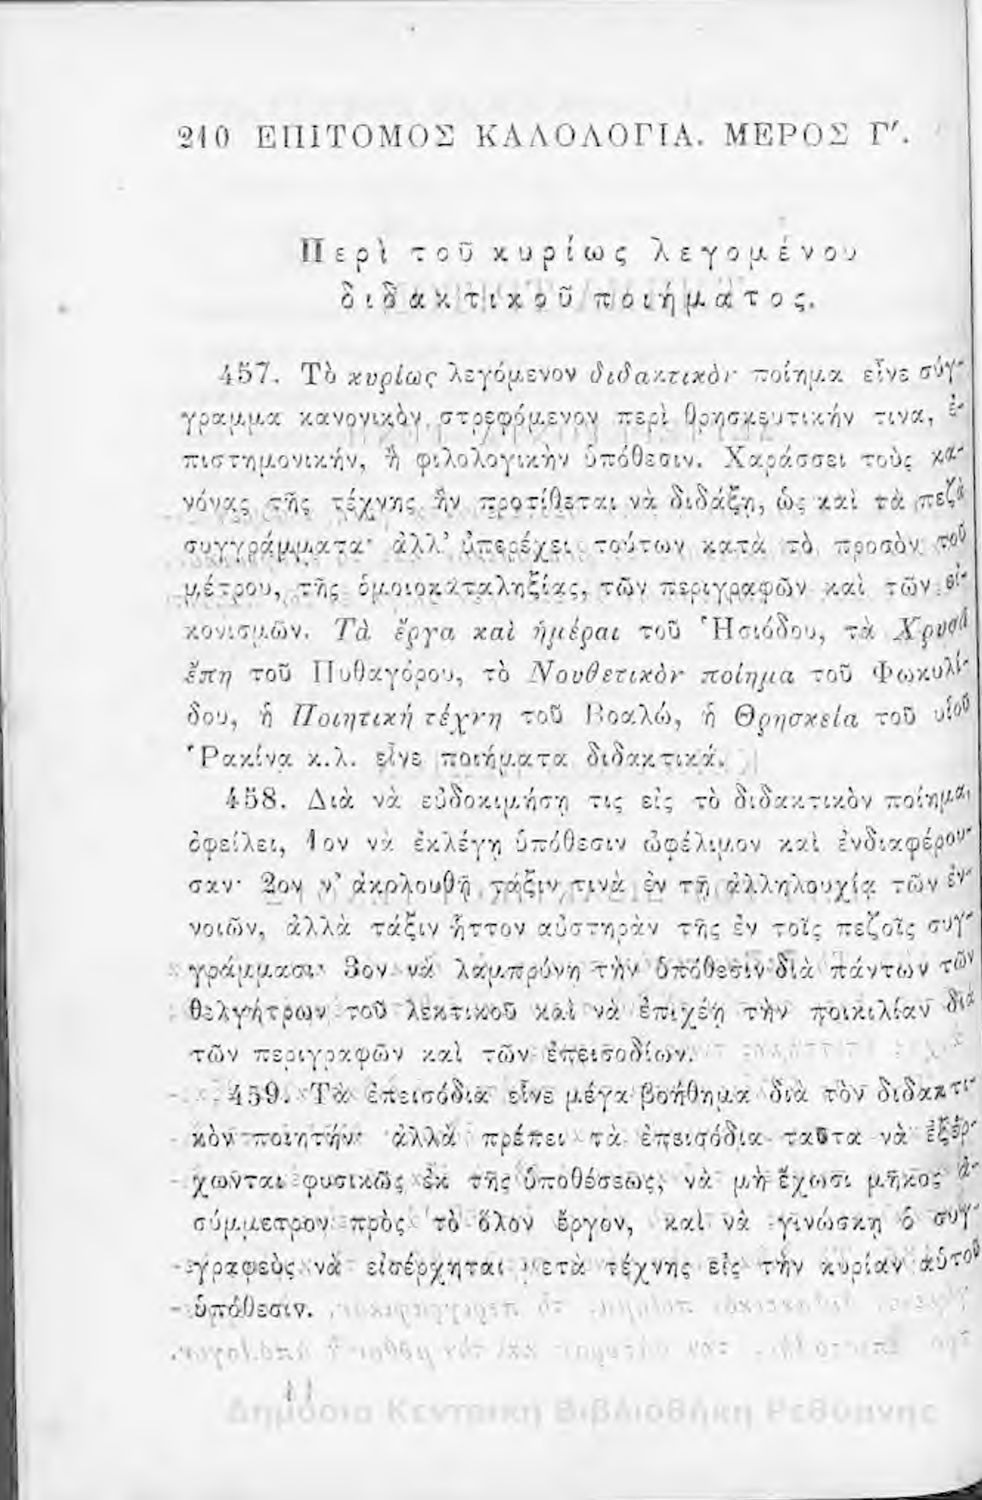 210 ΕΠΙΤΟΜΟΣ ΚΑΛΟΛΟΓΙΑ. ΜΕΡΟΣ Γ'.
Περὶ τοῦ κυρίως λεγομένου
διδακτικοῦ ποιήματος.
457. Τὸ κυρίως λεγόμενον διδακτικὸν ποίημα εἶνε σύγ-
γραμμα κανονικὸν στρεφόμενον περὶ θρησκευτικήν τινα, ἐ-
πιστημονικήν, ἢ φιλολογικὴν ὑπόθεσιν. Χαράσσει τοὺς κα-
νόνας τῆς τέχνης ἣν προτίθεται νὰ διδάξῃ, ὡς καὶ τὰ πεζὰ
συγγράμματα· ἀλλ' ὑπερέχει τούτων κατὰ τὸ προσὸν τοῦ
μέτρου, τῆς ὁμοιοκαταληξίας, τῶν περιγραφῶν καὶ τῶν εἰ-
κονισμῶν. Τὰ ἔργα καὶ ἡμέραι τοῦ Ἡσιόδου, τὰ Χρυσᾶ
ἔπη τοῦ Πυθαγόρου, τὸ Νουθετικὸν ποίημα τοῦ Φωκυλί-
δου, ἡ Ποιητικὴ τέχνη τοῦ Βοαλώ, ἡ Θρησκεία τοῦ υἱοῦ
Ῥακίνα κ.λ. εἶνε ποιήματα διδακτικά.
458. Διὰ νὰ εὐδοκιμήσῃ τις εἰς τὸ διδακτικὸν ποίημα,
ὀφείλει, 1ον νὰ ἐκλέγῃ ὑπόθεσιν ὠφέλιμον καὶ ἐνδιαφέρου-
σαν· 2ον ν' ἀκολουθῇ τάξιν τινὰ ἐν τῇ ἀλληλουχίᾳ τῶν ἐν-
νοιῶν, ἀλλὰ τάξιν ἧττον αὐστηρὰν τῆς ἐν τοῖς πεζοῖς συγ-
γράμμασι· 3ον νὰ λαμπρύνῃ τὴν ὑπόθεσιν διὰ πάντων τῶν
θελγήτρων τοῦ λεκτικοῦ καὶ νὰ ἐπιχέῃ τὴν ποικιλίαν διὰ
τῶν περιγραφῶν καὶ τῶν ἐπεισοδίων.
459. Τὰ ἐπεισόδια εἶνε μέγα βοήθημα διὰ τὸν διδακτι-
κὸν ποιητήν· ἀλλὰ πρέπει τὰ ἐπεισόδια ταῦτα νὰ ἐξέρ-
χωνται φυσικῶς ἐκ τῆς ὑποθέσεως, νὰ μὴ ἔχωσι μῆκος ἀ-
σύμμετρον πρὸς τὸ ὅλον ἔργον, καὶ νὰ γινώσκῃ ὁ συγ-
γραφεὺς νὰ εἰσέρχηται μετὰ τέχνης εἰς τὴν κυρίαν αὑτοῦ
ὑπόθεσιν.
Δημόσια Κεντρική Βιβλιοθήκη Ρεθύμνης